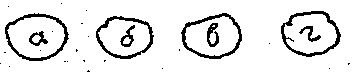 а б в г